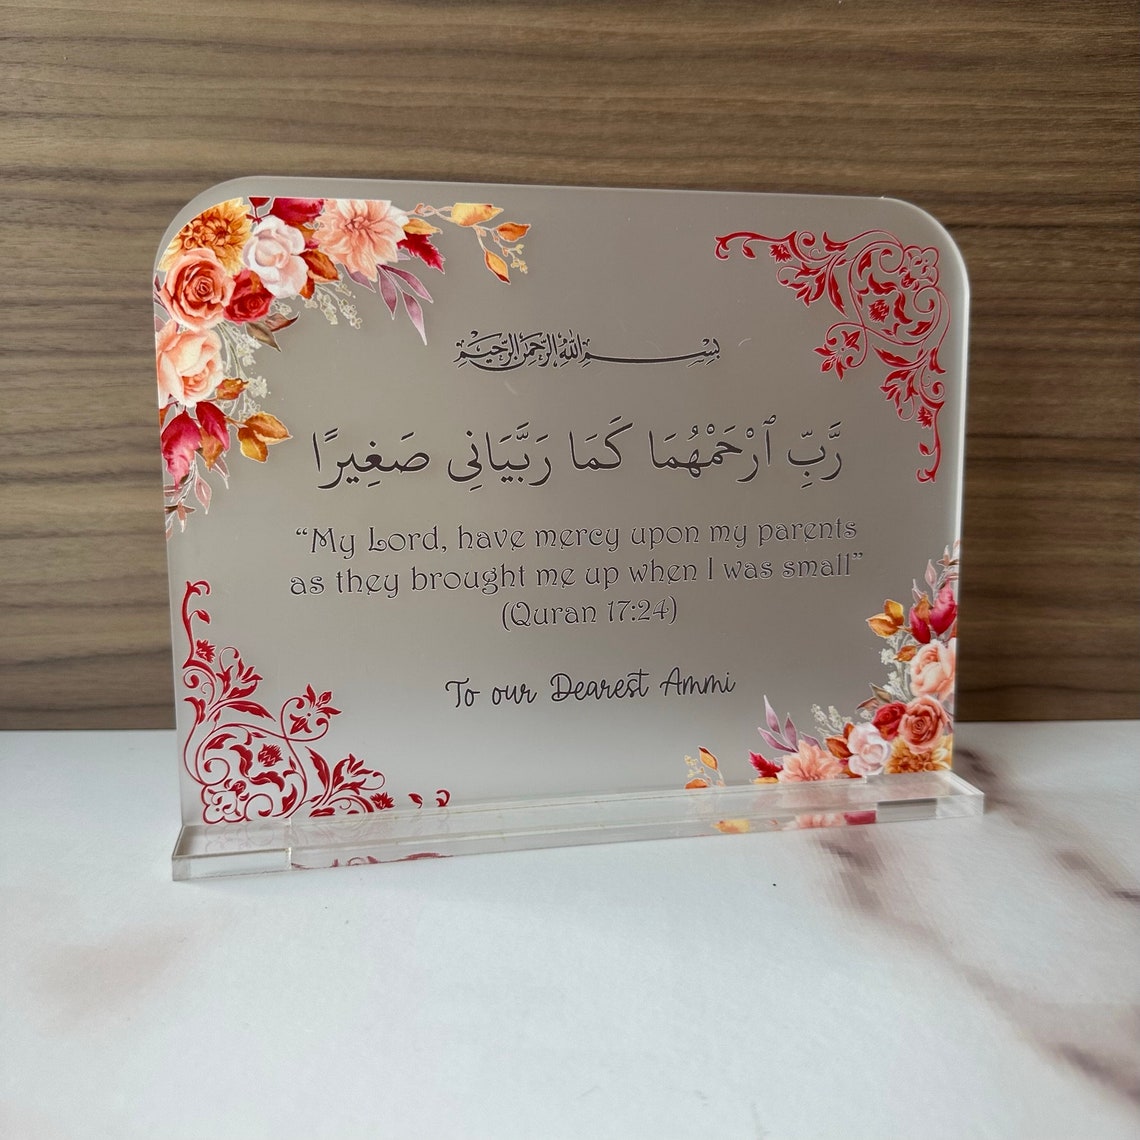 بسم الله الرحمن الرحيم
رَّبِّ ٱرْحَمْهُمَا كَمَا رَبَّيَانِى صَغِيرًا
“My Lord, have mercy upon my parents
as they brought me up when I was small”
(Quran 17:24)
To our Dearest Ammi